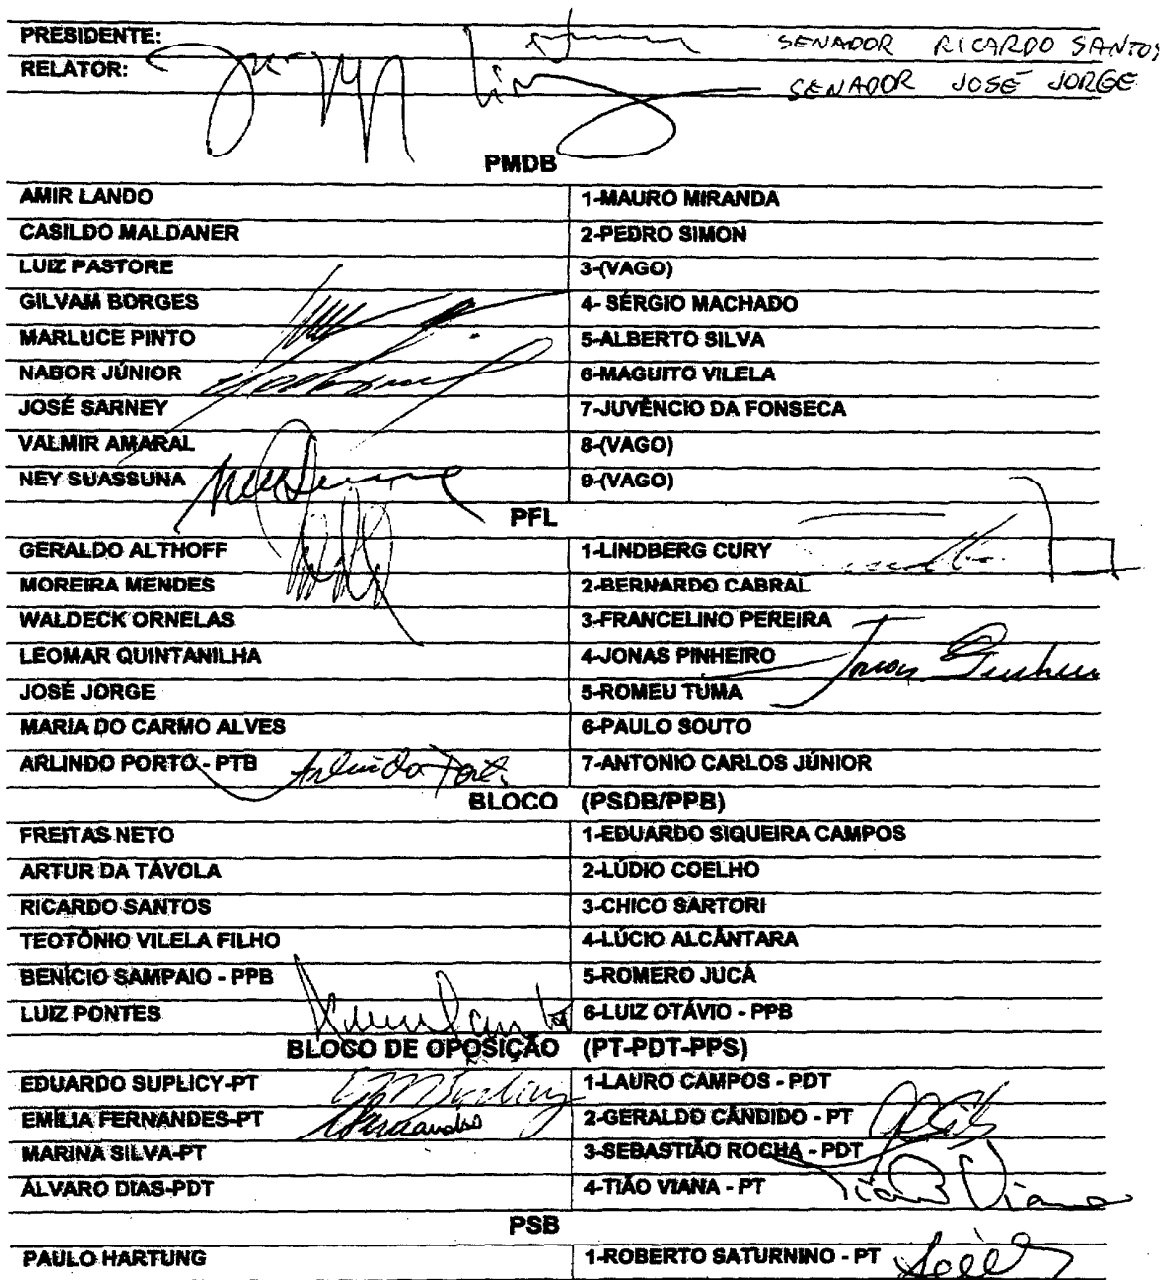 PRESIDENTE: SENADOR RICARDO SANTOS
RELATOR: SENADOR JOSÉ JORGE
PMDB
AMIR LANDO 1-MAURO MIRANDA
CASILDO MALDANER 2-PEDRO SIMON
LUIZ PASTORE 3-(VAGO)
GILVAM BORGES 4- SÉRGIO MACHADO
MARLUCE PINTO 5-ALBERTO SILVA
NABOR JÚNIOR 6-MAGUITO VILELA
JOSÉ SARNEY 7-JUVÊNCIO DA FONSECA
VALMIR AMARAL 8-(VAGO)
NEY SUASSUNA 9-(VAGO)
PFL
GERALDO ALTHOFF 1-LINDBERG CURY
MOREIRA MENDES 2-BERNARDO CABRAL
WALDECK ORNELAS 3-FRANCELINO PEREIRA
LEOMAR QUINTANILHA 4-JONAS PINHEIRO Jonas Pinheiro
JOSÉ JORGE 5-ROMEU TUMA
MARIA DO CARMO ALVES 6-PAULO SOUTO
ARLINDO PORTO - PTB Arlindo Porto 7-ANTONIO CARLOS JÚNIOR
BLOCO (PSDB/PPB)
FREITAS NETO 1-EDUARDO SIQUEIRA CAMPOS
ARTUR DA TÁVOLA 2-LÚDIO COELHO
RICARDO SANTOS 3-CHICO SARTORI
TEOTÔNIO VILELA FILHO 4-LÚCIO ALCÂNTARA
BENÍCIO SAMPAIO - PPB 5-ROMERO JUCÁ
LUIZ PONTES 6-LUIZ OTÁVIO - PPB
BLOCO DE OPOSIÇÃO (PT-PDT-PPS)
EDUARDO SUPLICY-PT 1-LAURO CAMPOS - PDT
EMÍLIA FERNANDES-PT 2-GERALDO CÂNDIDO - PT
MARINA SILVA-PT 3-SEBASTIÃO ROCHA - PDT
ÁLVARO DIAS-PDT 4-TIÃO VIANA - PT Tião Viana
PSB
PAULO HARTUNG 1-ROBERTO SATURNINO - PT